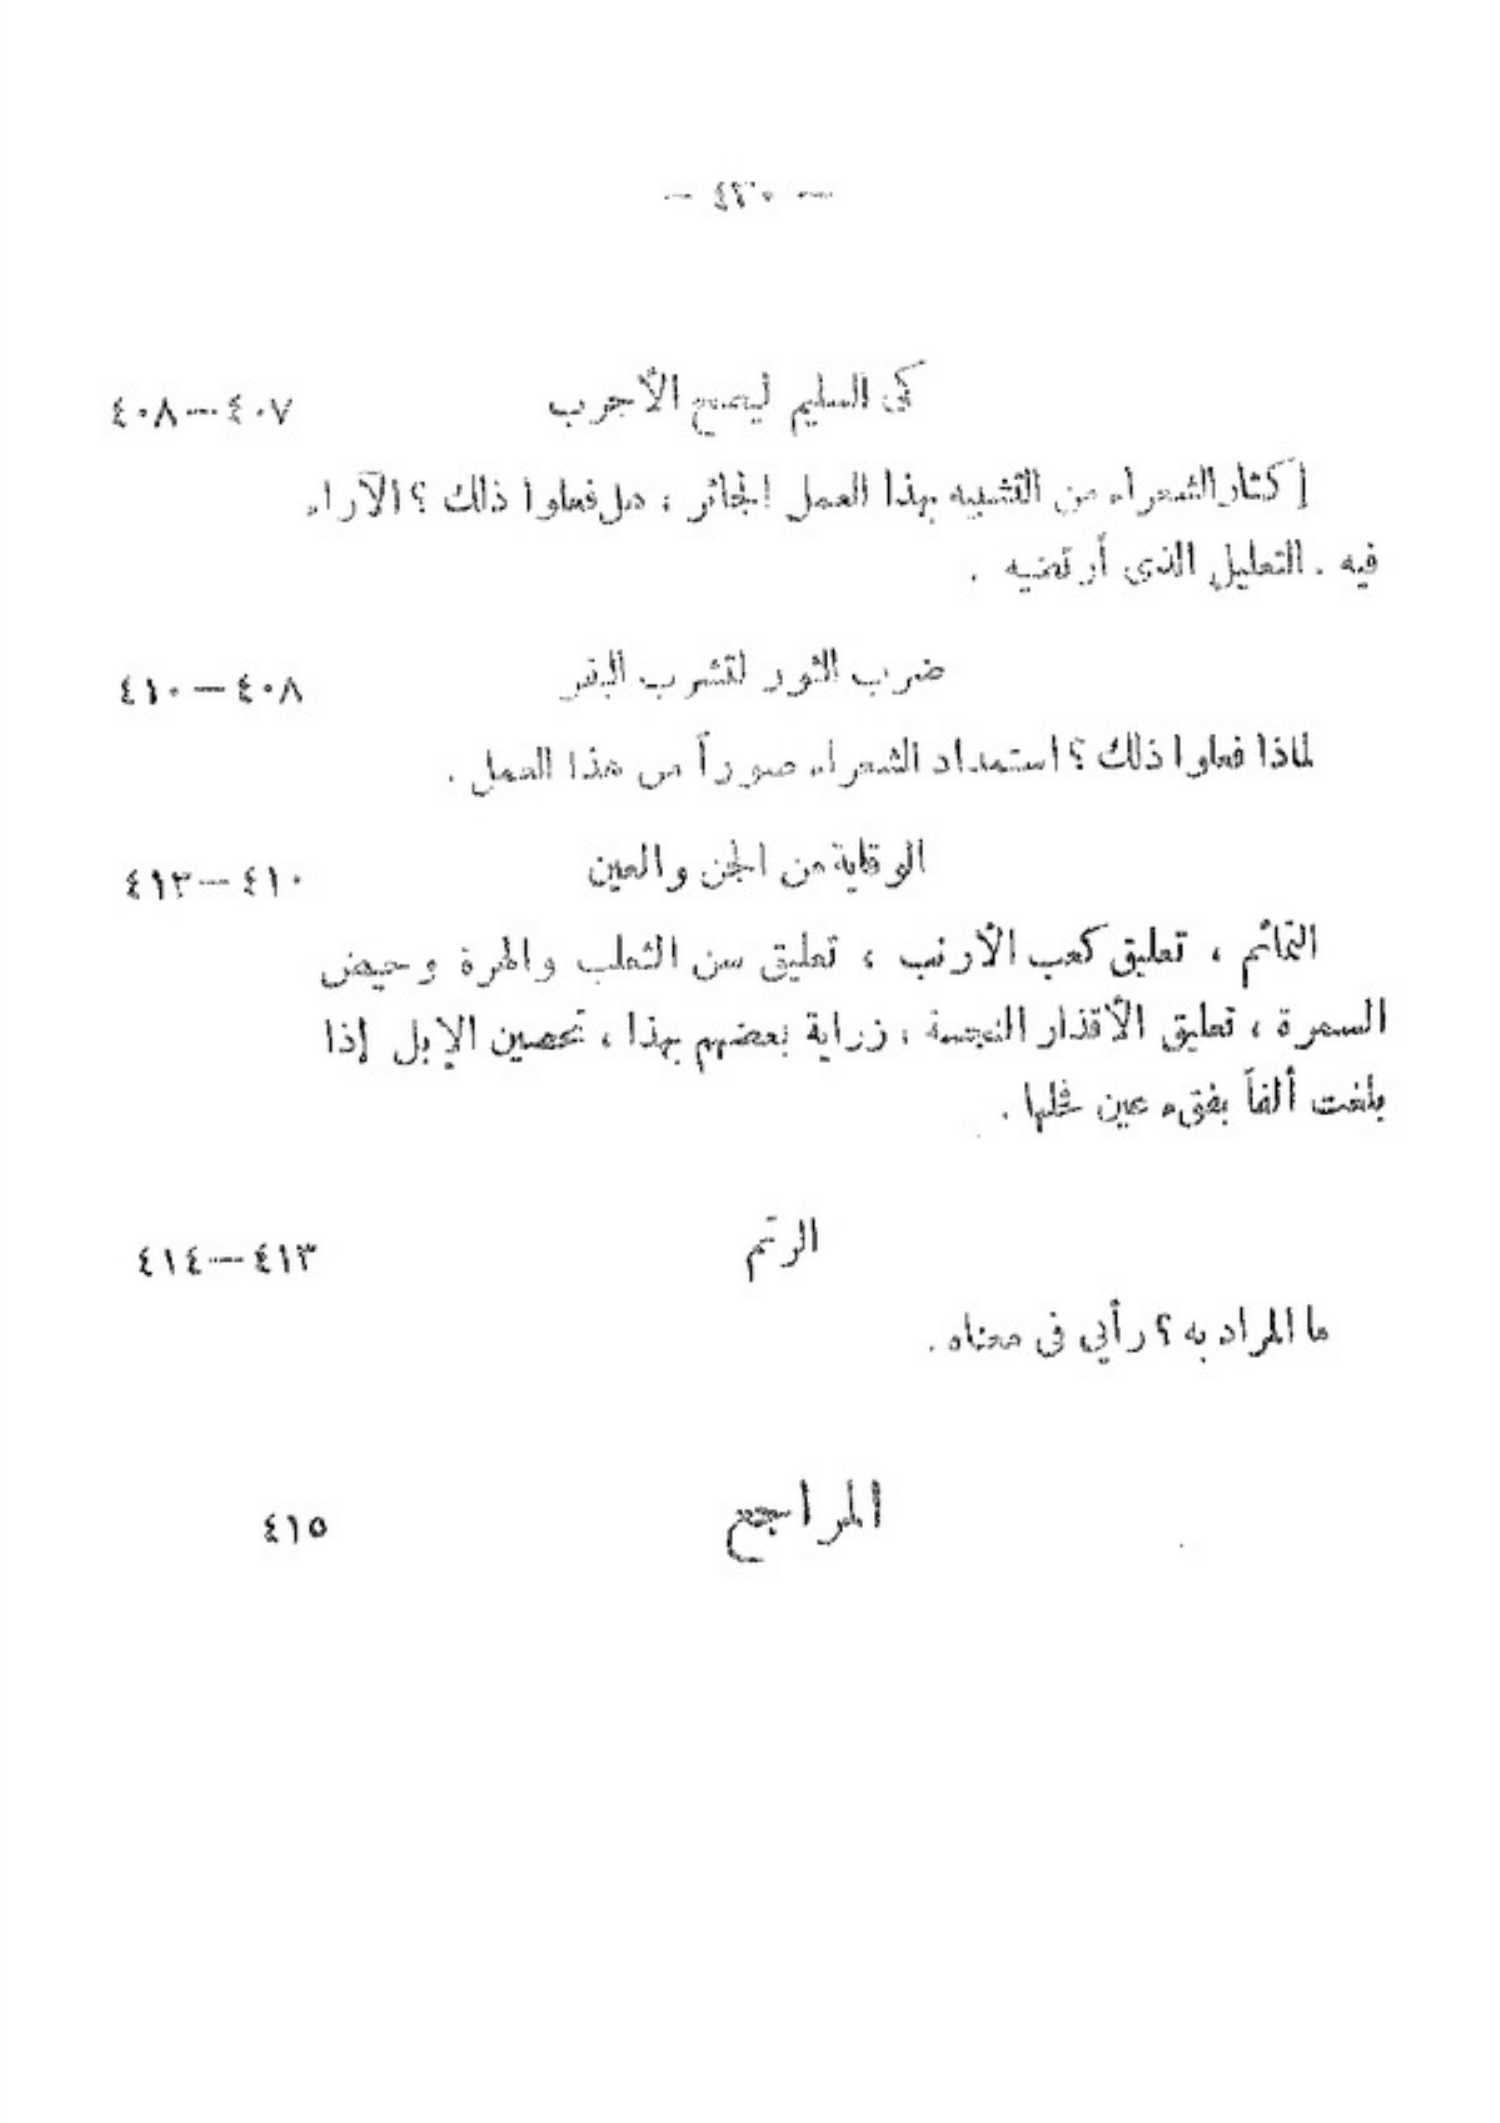 — ٤٣٠ —
كى السليم ليصح الأجرب ٤٠٧—٤٠٨
إكثار الشعراء من التشبيه بهذا العمل الجائر ، هل فعلوا ذلك ؟ الآراء
فيه . التعليل الذى أرتضيه .
ضرب الثور لتشرب البقر ٤٠٨—٤١٠
لماذا فعلوا ذلك ؟ استمداد الشعراء صوراً من هذا العمل .
الوقاية من الجن والعين ٤١٠—٤١٣
التمائم ، تعليق كعب الأرنب ، تعليق سن الثعلب والهرة وحيض
السمرة ، تعليق الأقذار النجسة ، زراية بعضهم بهذا ، تحصين الإبل إذا
بلغت ألفاً بفقء عين فحلها .
الرتم ٤١٣—٤١٤
ما المراد به ؟ رأيي فى معناه .
المراجع ٤١٥